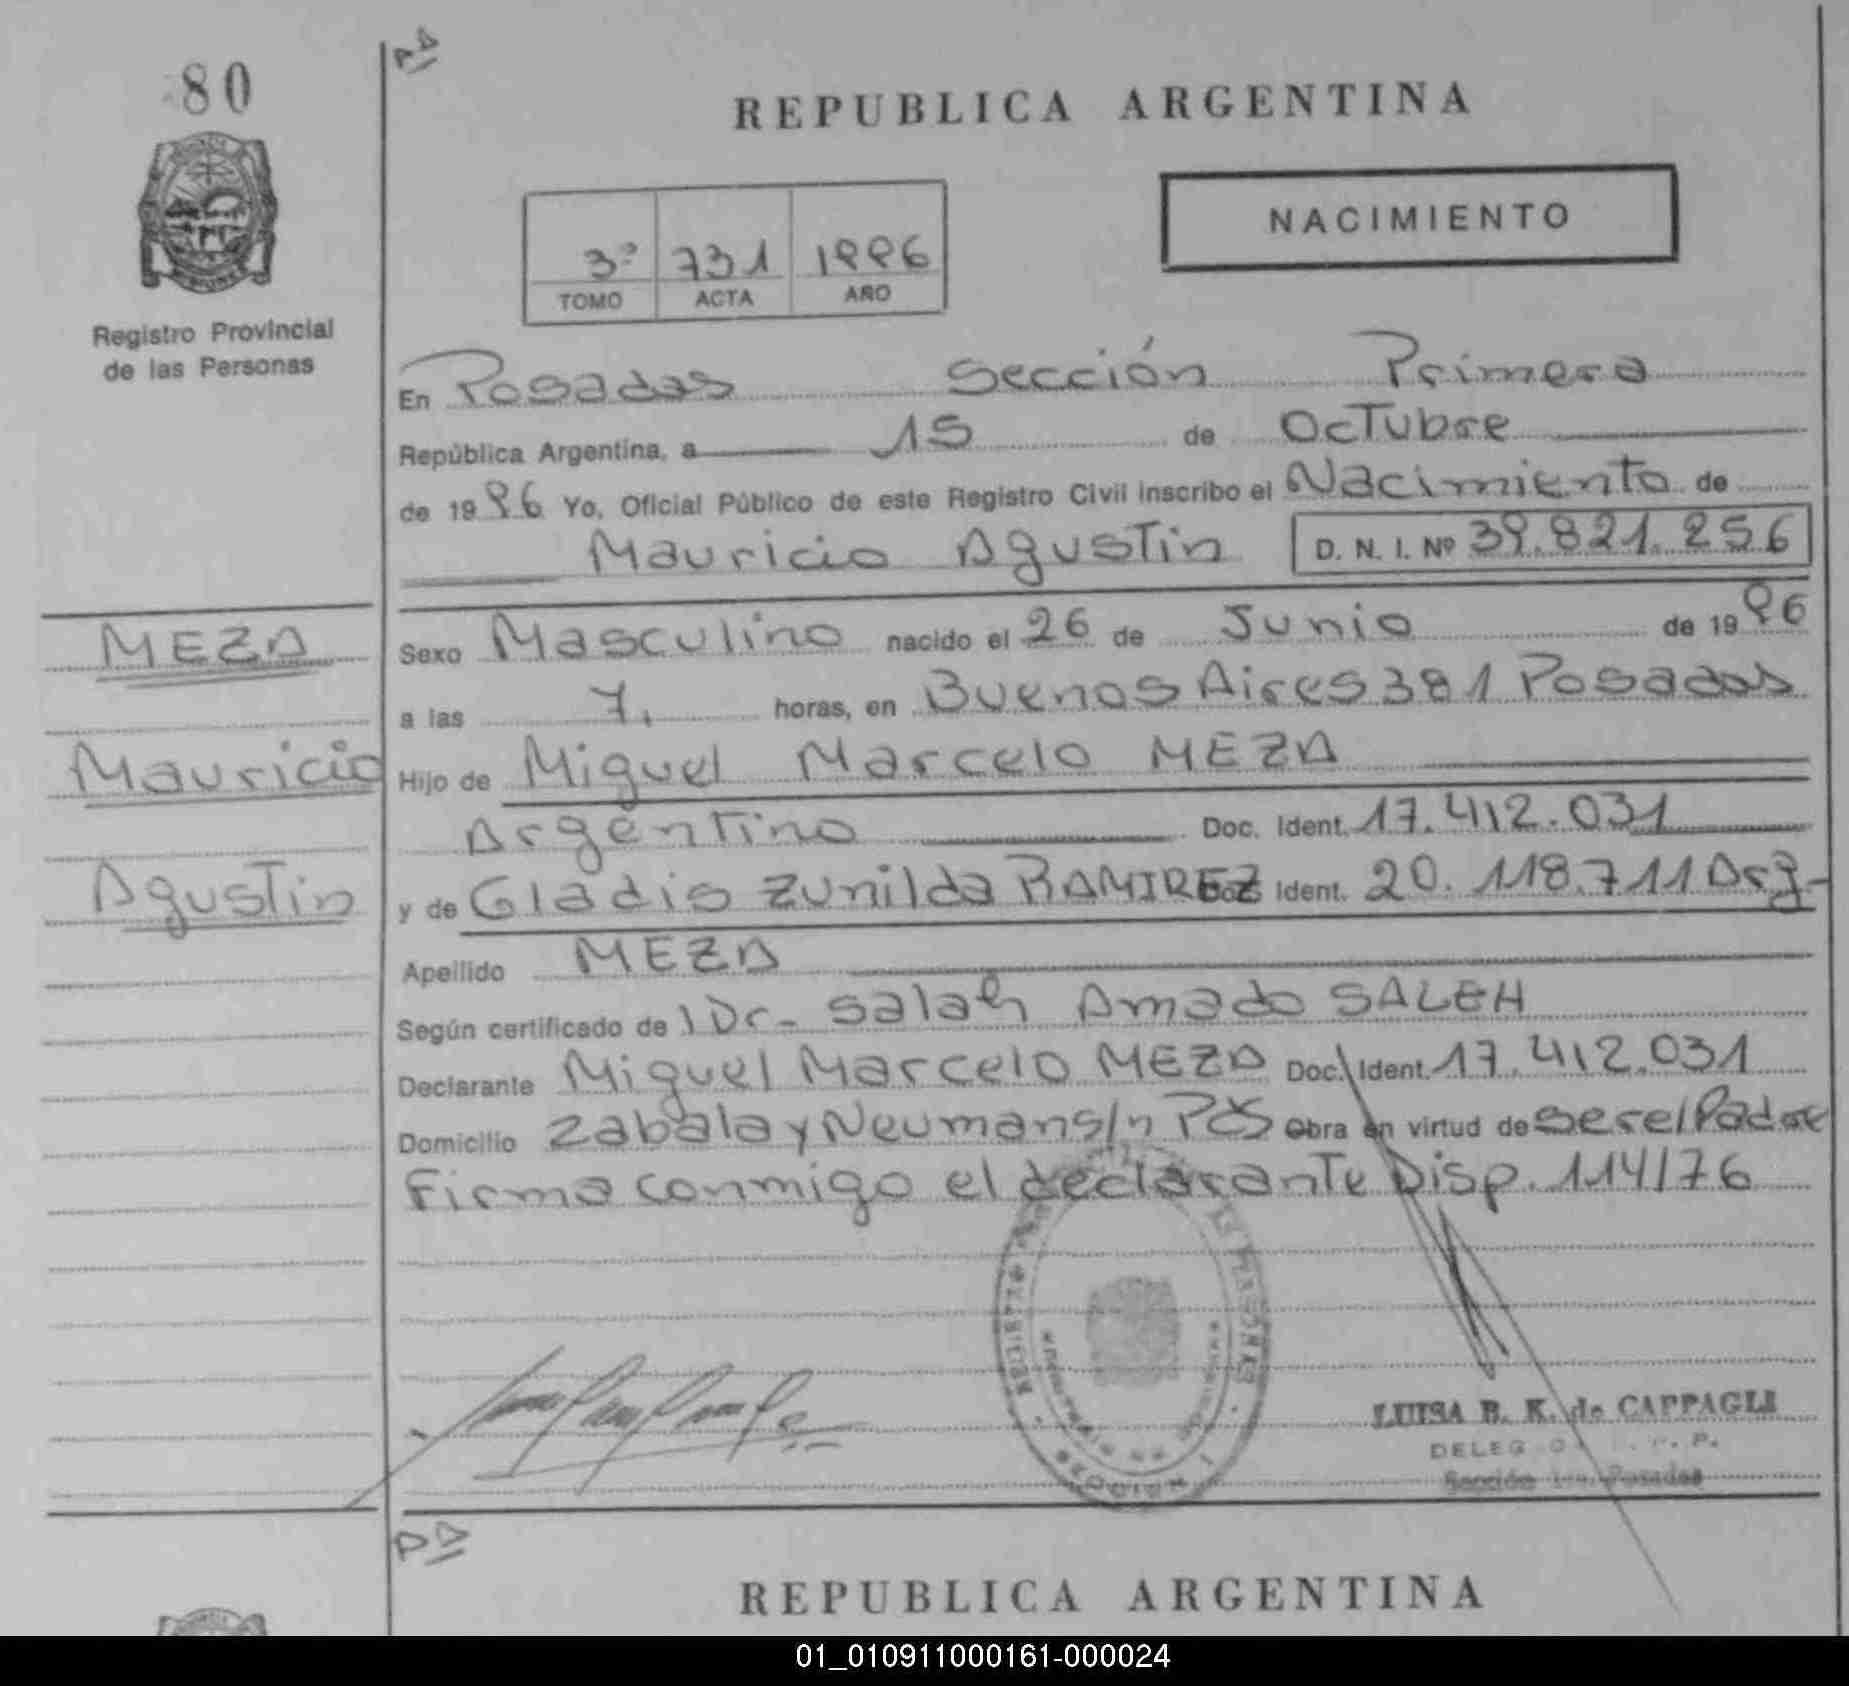 80
REPUBLICA ARGENTINA
NACIMIENTO
3º 731 1996
TOMO ACTA AÑO
Registro Provincial
de las Personas
En Posadas Sección Primera
República Argentina, a 15 de Octubre
de 1996 Yo, Oficial Público de este Registro Civil inscribo el Nacimiento de
Mauricio Agustin D. N. I. Nº 39.821.256
MEZA
Mauricio
Agustin
Sexo Masculino nacido el 26 de Junio de 1996
a las 7. horas, en Buenos Aires 381 Posadas
Hijo de Miguel Marcelo MEZA
Argentino Doc. Ident. 17.412.031
y de Gladis Zunilda RAMIREZ Doc. Ident. 20.118.711 Arg-
Apellido MEZA
Según certificado de Dr- Salah Amado SALEH
Declarante Miguel Marcelo MEZA Doc. Ident. 17.412.031
Domicilio Zabala y Neuman s/n Pdas Obra en virtud de ser el Padre
Firma conmigo el declarante Disp. 114/76
LUISA B. K. de CAPPAGLI
DELEG
Sección 1ra. Posadas
REPUBLICA ARGENTINA
01_010911000161-000024